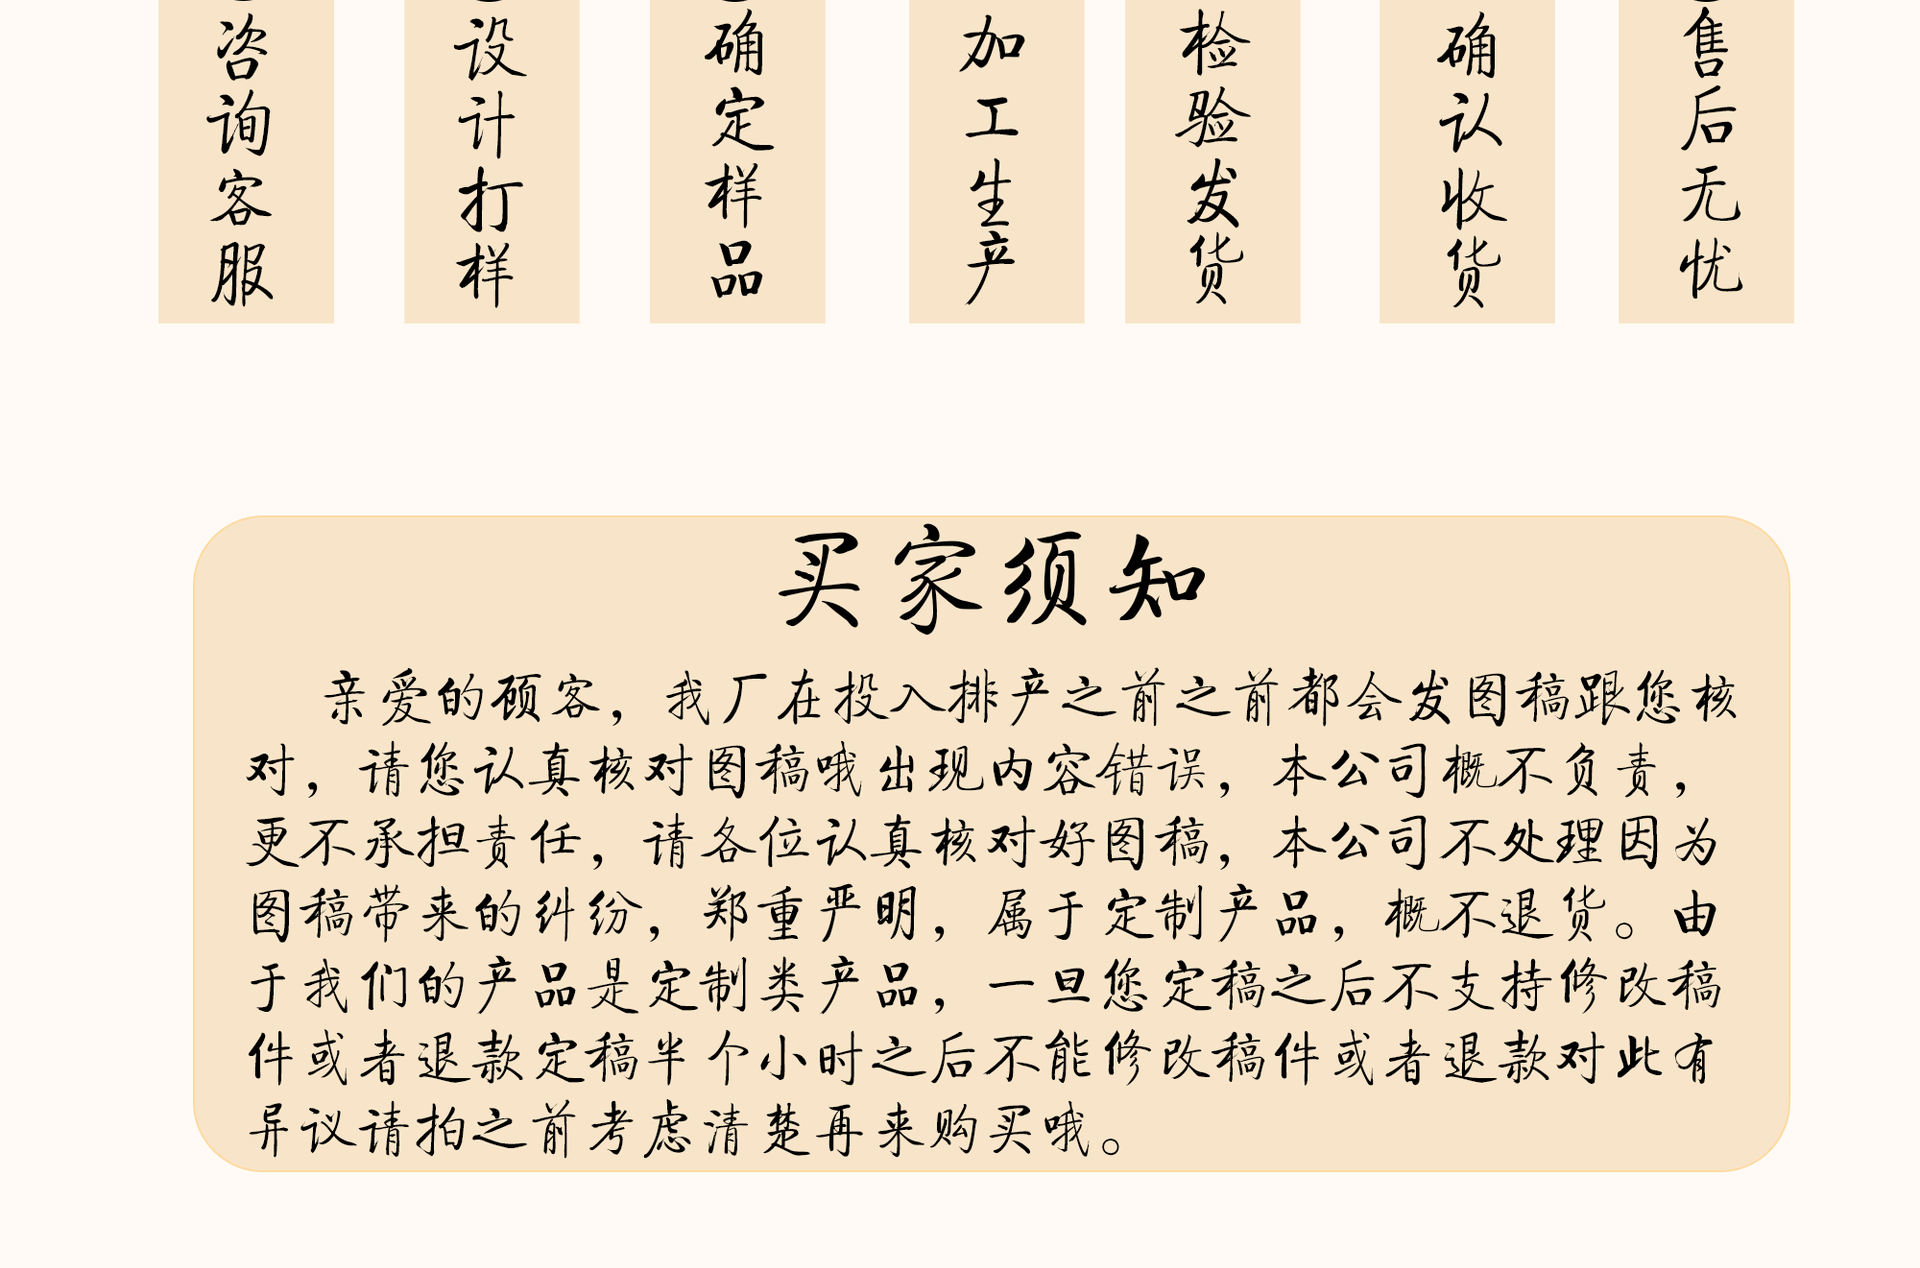 咨询客服
设计打样
确定样品
加工生产
检验发货
确认收货
售后无忧
买家须知
亲爱的顾客，我厂在投入排产之前之前都会发图稿跟您核
对，请您认真核对图稿哦出现内容错误，本公司概不负责，
更不承担责任，请各位认真核对好图稿，本公司不处理因为
图稿带来的纠纷，郑重严明，属于定制产品，概不退货。由
于我们的产品是定制类产品，一旦您定稿之后不支持修改稿
件或者退款定稿半个小时之后不能修改稿件或者退款对此有
异议请拍之前考虑清楚再来购买哦。